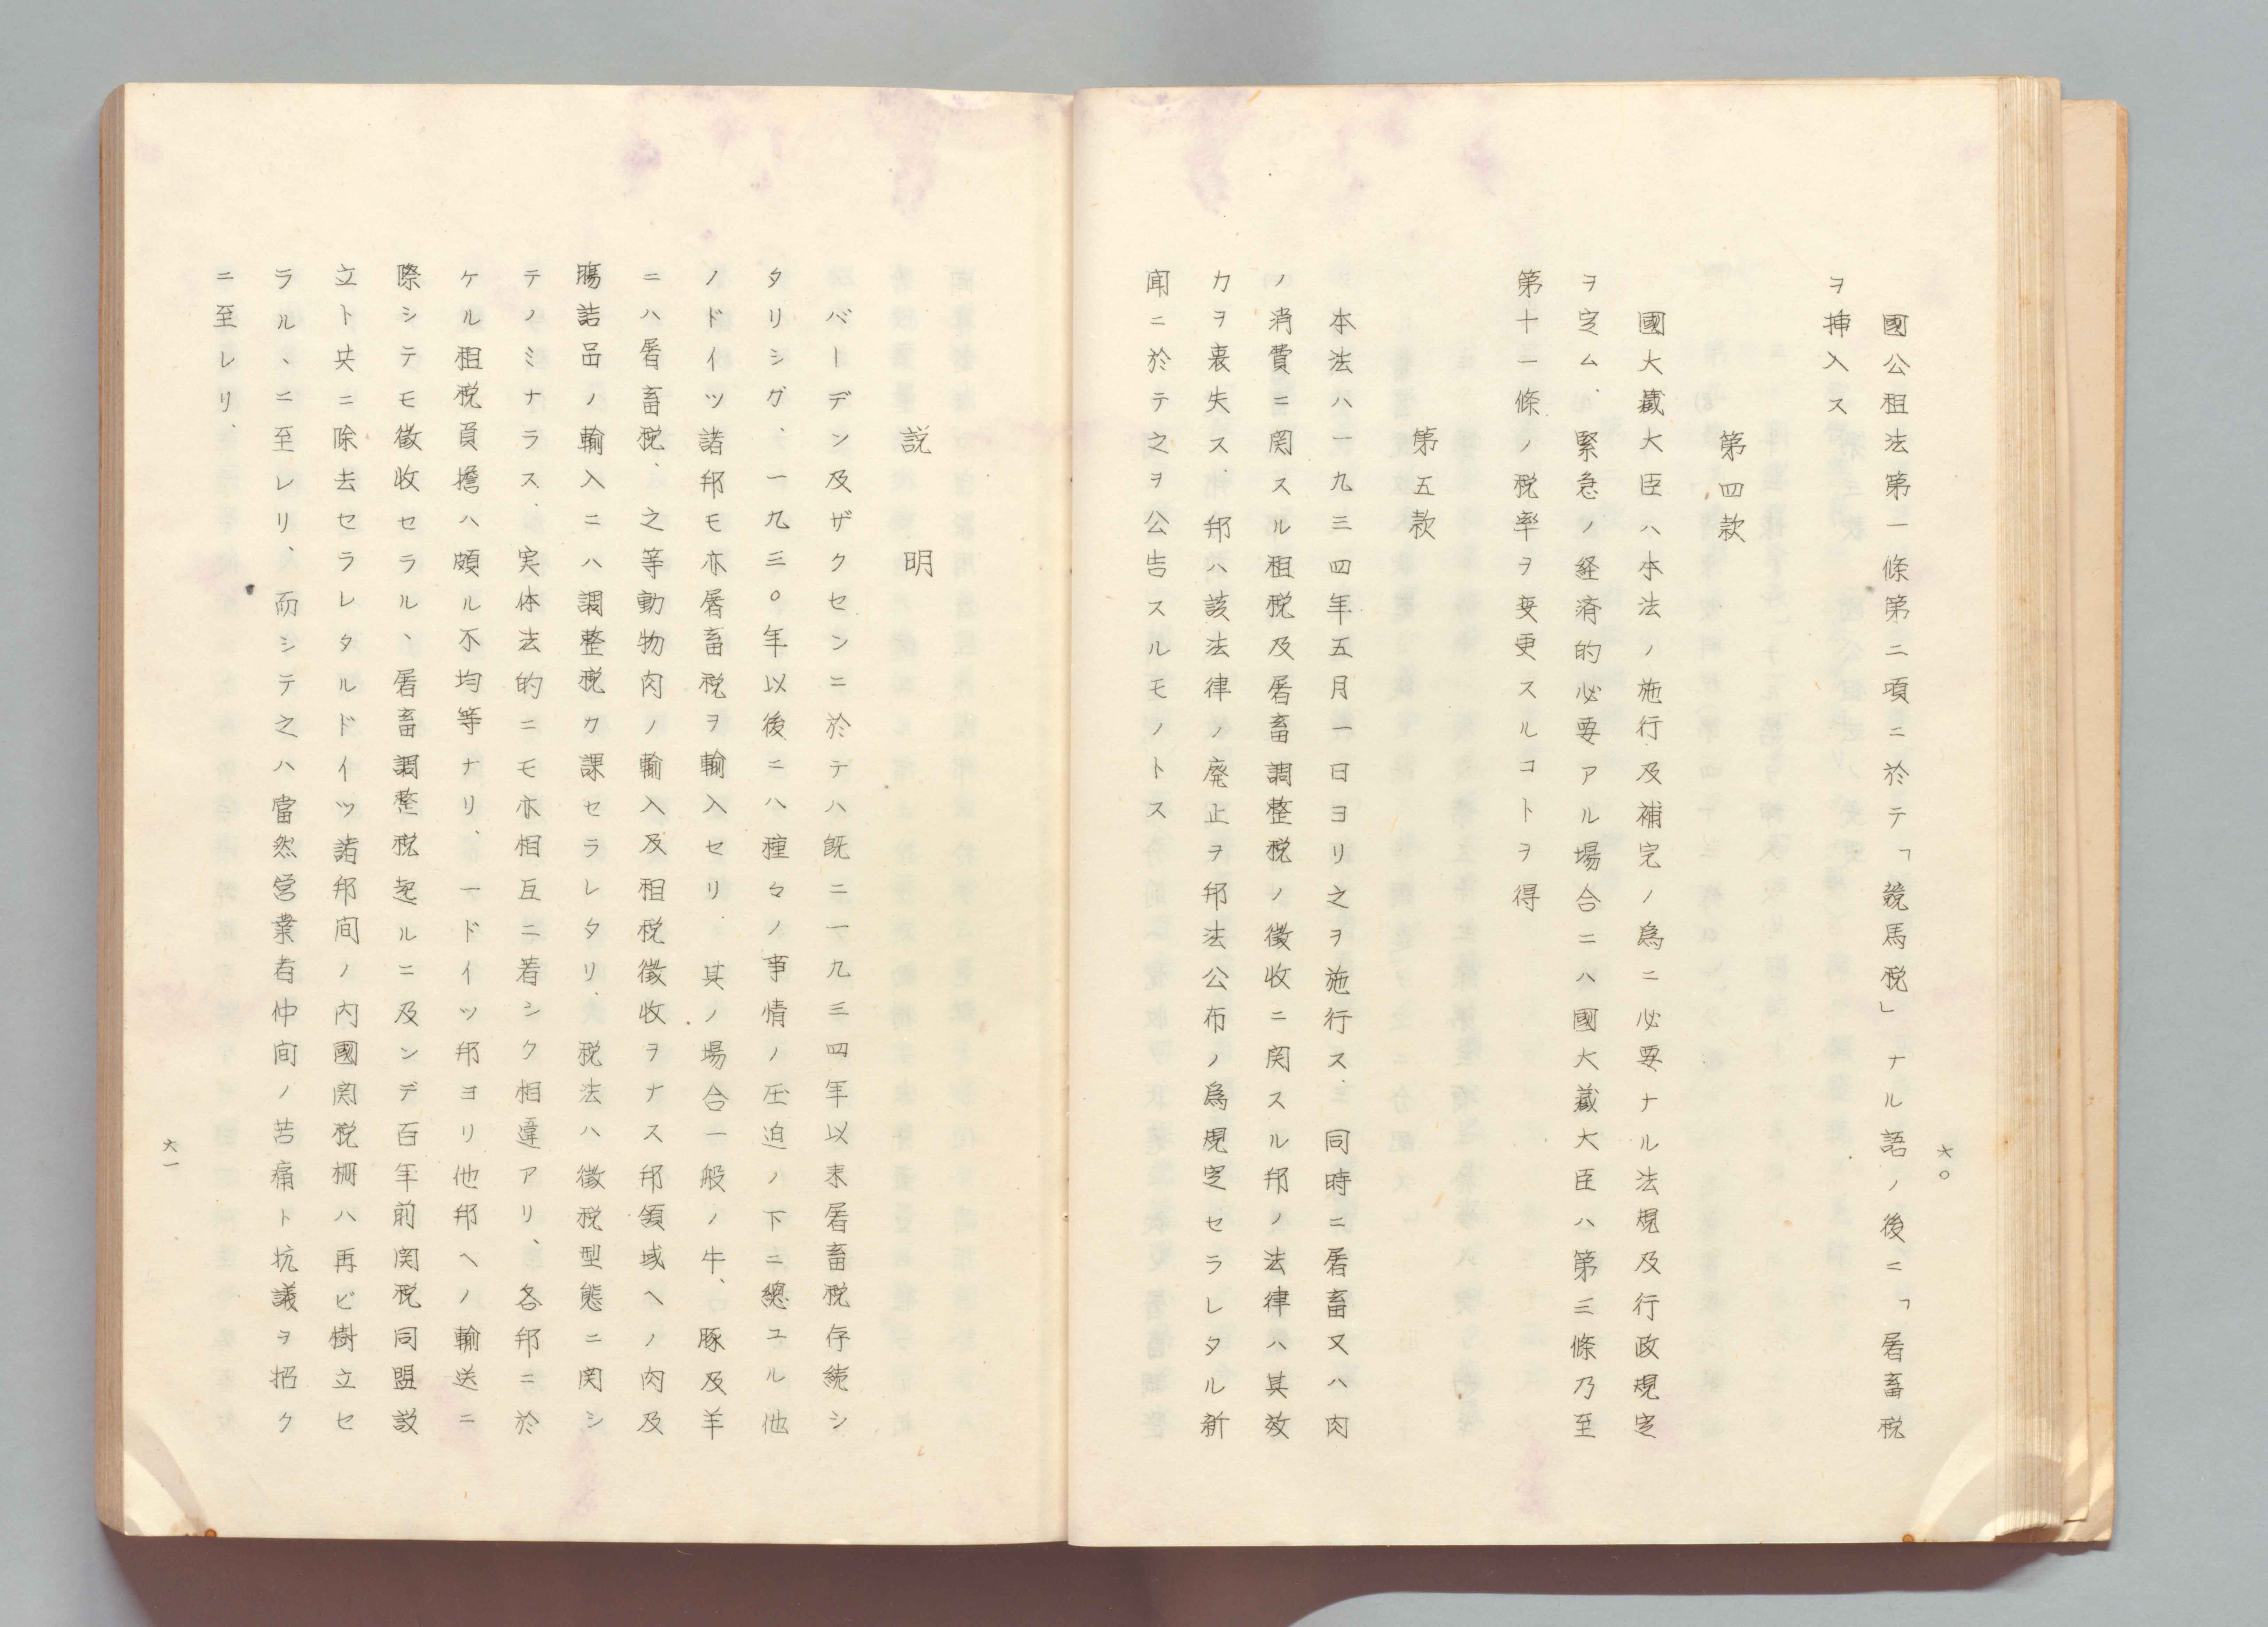 六〇
國公租法第一條第二項ニ於テ「競馬税」ナル語ノ後ニ「屠畜税
ヲ挿入ス
第四款
國大藏大臣ハ本法ノ施行及補完ノ爲ニ必要ナル法規及行政規定
ヲ定ム、緊急ノ経済的必要アル場合ニハ國大藏大臣ハ第三條乃至
第十一條ノ税率ヲ変更スルコトヲ得
第五款
本法ハ一九三四年五月一日ヨリ之ヲ施行ス、同時ニ屠畜又ハ肉
ノ消費ニ関スル租税及屠畜調整税ノ徴收ニ関スル邦ノ法律ハ其效
力ヲ喪失ス、邦ハ該法律ノ廃止ヲ邦法公布ノ爲規定セラレタル新
聞ニ於テ之ヲ公告スルモノトス
説明
バーデン及ザクセンニ於テハ既ニ一九三四年以来屠畜税存続シ
タリシガ、一九三〇年以後ニハ種々ノ事情ノ圧迫ノ下ニ總ユル他
ノドイツ諸邦モ亦屠畜税ヲ輸入セリ 其ノ場合一般ノ牛、豚及羊
ニハ屠畜税、之等動物肉ノ輸入及租税徴收ヲナス邦領域ヘノ肉及
腸詰品ノ輸入ニハ調整税ク課セラレタリ、税法ハ徴税型態ニ関シ
テノミナラス、実体法的ニモ亦相互ニ著シク相違アリ、各邦ニ於
ケル租税負擔ハ頗ル不均等ナリ、一ドイツ邦ヨリ他邦ヘノ輸送ニ
際シテモ徴收セラル、屠畜調整税起ルニ及ンデ百年前関税同盟設
立ト共ニ除去セラレタルドイツ諸邦间ノ内國関税柵ハ再ビ樹立セ
ラル、ニ至レリ、而シテ之ハ當然営業者仲间ノ苦痛ト抗議ヲ招ク
ニ至レリ、
六一